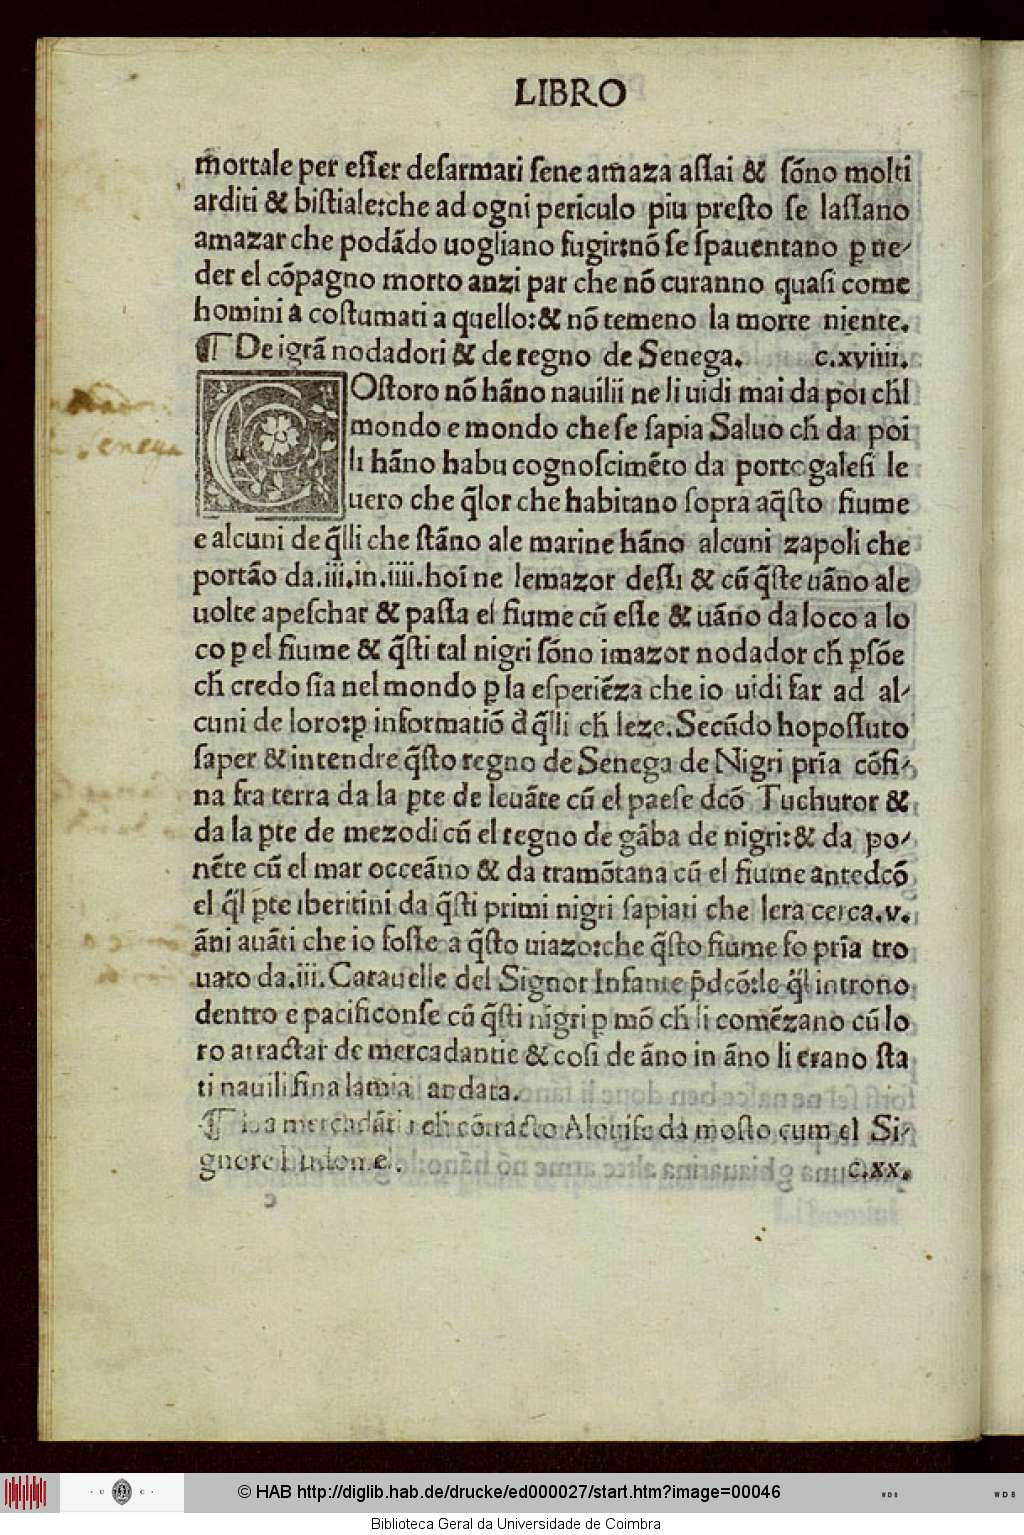 LIBRO
mortale per eſſer deſarmati ſene amaza aſſai & ſõno molti
arditi & biſtiale:che ad ogni periculo piu preſto ſe laſſano
amazar che podãdo uogliano fugir:nõ ſe ſpauentano ꝑ ue-
der el cõpagno morto anzi par che nõ curanno quaſi come
homini a coſtumati a quello:& nõ temeno la morte niente.
¶ De i grã nodadori & de regno de Senega. c.xviiii.
COſtoro nõ hãno nauilii ne li uidi mai da poi ch̃l
mondo e mondo che ſe ſapia Saluo ch̃ da poi
li hãno habu cognoſcimẽto da portogaleſi le
uero che q̃lor che habitano ſopra aq̃ſto fiume
e alcuni de q̃lli che ſtãno ale marine hãno alcuni zapoli che
portão da.iii.in.iiii.hoĩ ne lemazor deſſi & cũ q̃ſte uãno ale
uolte apeſchar & paſſa el fiume cũ eſſe & uãno da loco a lo
co ꝑ el fiume & q̃ſti tal nigri ſõno imazor nodador ch̃ ꝑſõe
ch̃ credo ſia nel mondo ꝑ la eſperiẽza che io uidi far ad al-
cuni de loro:ꝑ informatiõ d̃ q̃lli ch̃ leze. Secũdo hopoſſuto
ſaper & intendre q̃ſto regno de Senega de Nigri prĩa cõfi-
na fra terra da la ꝑte de leuãte cũ el paeſe dcõ Tuchuror &
da la ꝑte de mezodi cũ el regno de gãba de nigri:& da po-
nẽte cũ el mar occeãno & da tramõtana cũ el fiume antedcõ
el q̃l ꝑte iberitini da q̃ſti primi nigri ſapiati che lera cerca.v.
ãni auãti che io foſſe a q̃ſto uiazo:che q̃ſto fiume fo prĩa tro
uato da.iii. Carauelle del Signor Infante p̃dcõ:le q̃l introno
dentro e pacificonſe cũ q̃ſti nigri ꝑ mõ ch̃ li comẽzano cũ lo
ro atractar de mercadantie & coſi de ãno in ãno li erano ſta
ti nauili fina lamia andata.
¶ La mercadãtia ch̃ cõtracto Alouiſe da moſto cum el Si-
gnore Budomel. c.xx.
c
Senega
© HAB http://diglib.hab.de/drucke/ed000027/start.htm?image=00046
Biblioteca Geral da Universidade de Coimbra